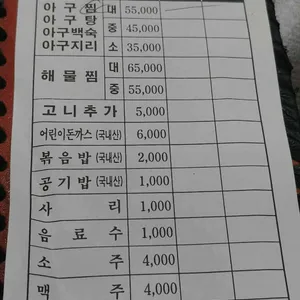 아 구 찜 대 55,000
아 구 탕 중 45,000
아구백숙
아구지리 소 35,000
해 물 찜 대 65,000
중 55,000
고 니 추 가 5,000
어린이돈까스 (국내산) 6,000
볶 음 밥 (국내산) 2,000
공 기 밥 (국내산) 1,000
사 리 1,000
음 료 수 1,000
소 주 4,000
맥 주 4,000